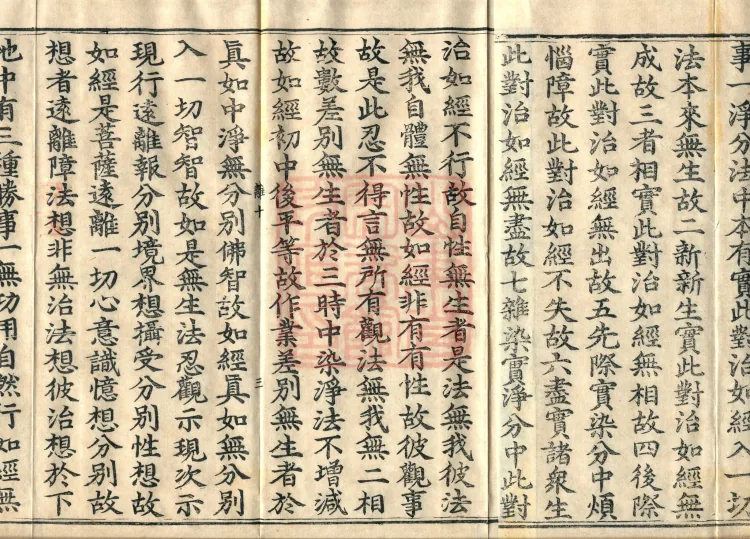 事一淨分法中本有實此對治如經入一切
法本來無生故二新新生實此對治如經無
成故三者相實此對治如經無相故四後際
實此對治如經無出故五先際實染分中煩
惱障故此對治如經不失故六盡實諸衆生
此對治如經無盡故七雜染實淨分中此對
治如經不行故自性無生者是法無我彼法
無我自體無性故如經非有有性故彼觀事
故是此忍不得言無所有觀法無我無二相
故數差別無生者於三時中染淨法不增減
故如經初中後平等故作業差別無生者於
離十 三
眞如中淨無分別佛智故如經眞如無分別
入一切智智故如是無生法忍觀示現次示
現行遠離報分別境界想攝受分別性想故
如經是菩薩遠離一切心意識憶想分別故
想者遠離障法想非無治法想彼治想於下
地中有三種勝事一無功用自然行如經無